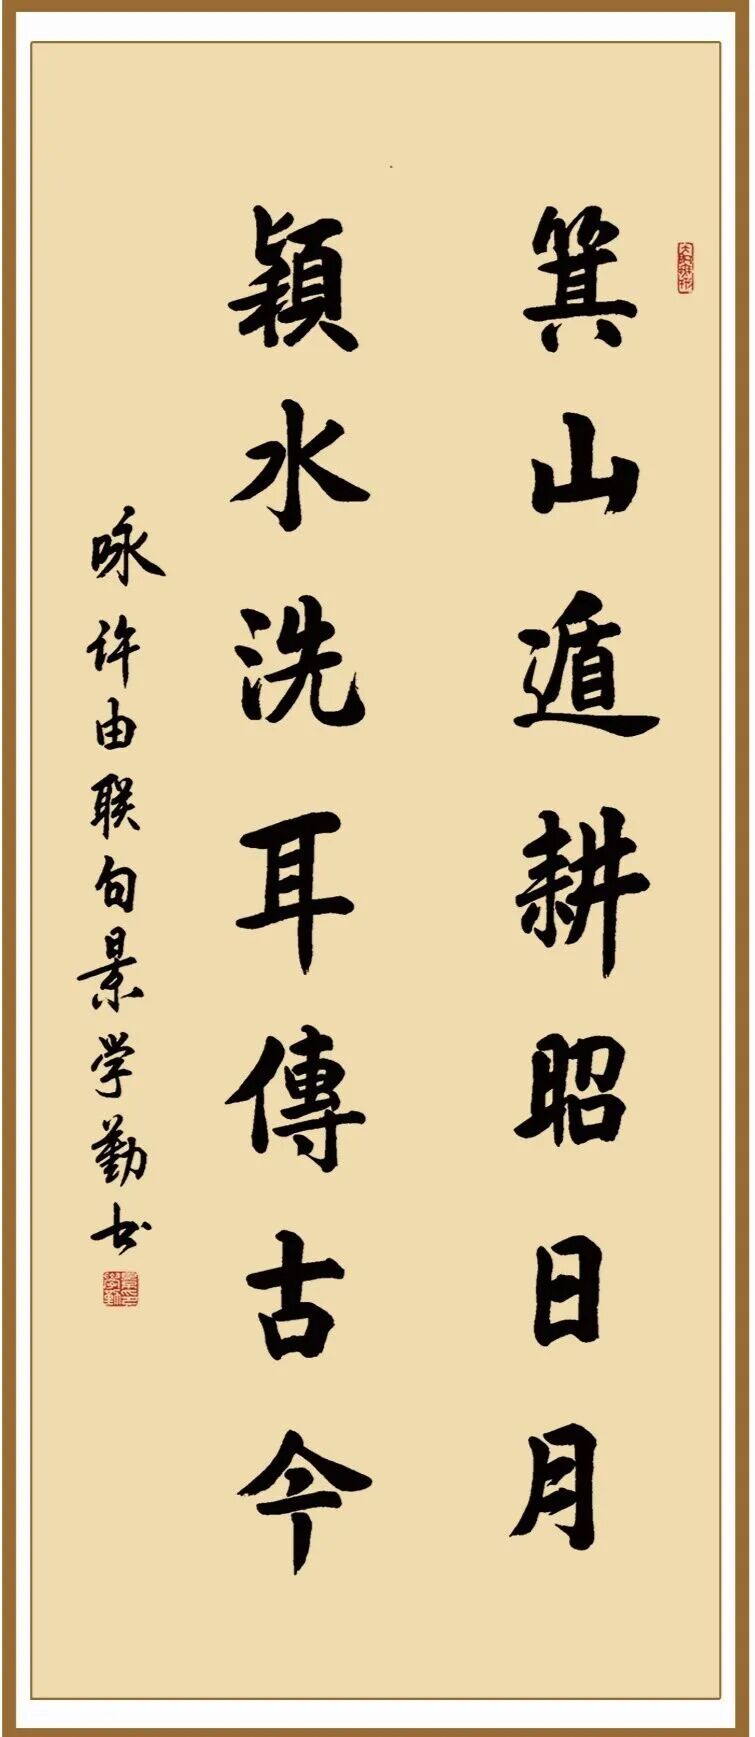 箕山遁耕昭日月
潁水洗耳傳古今
咏许由联句景学勤书